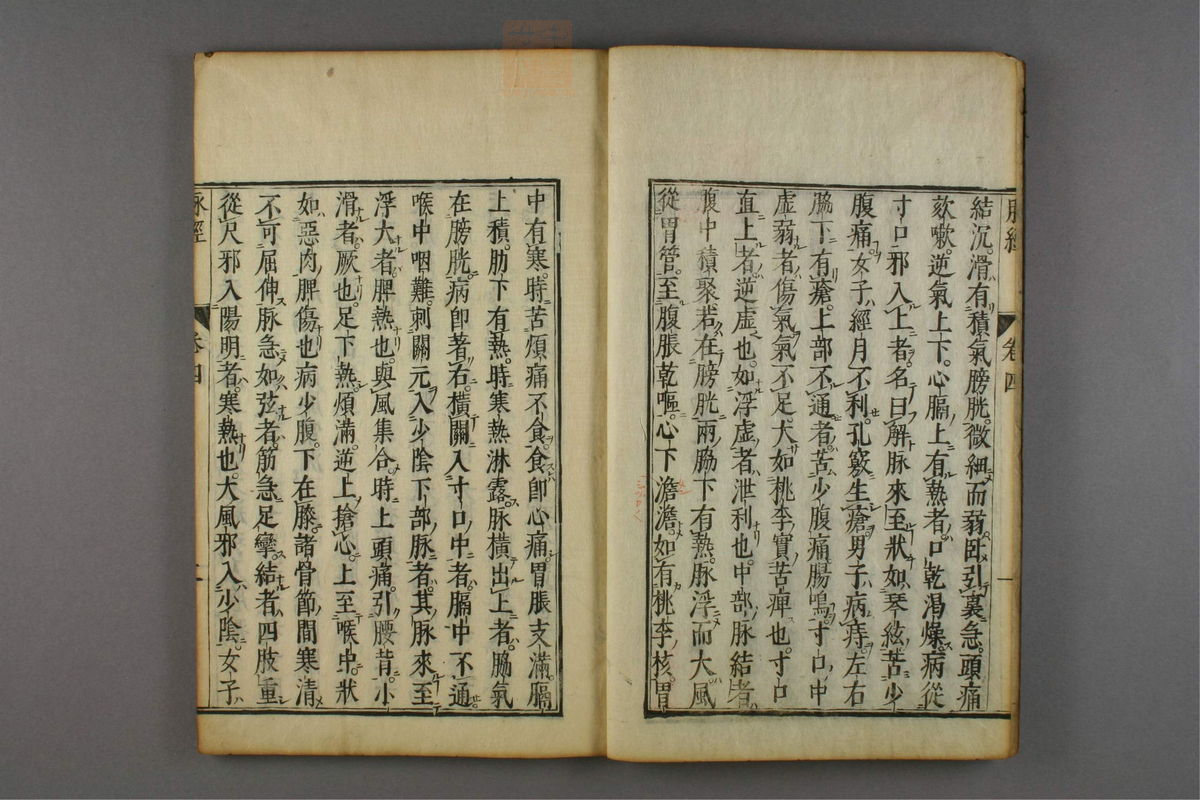 脉經
卷四
結沉滑有積氣膀胱微細而弱臥引裏急頭痛
欬嗽逆氣上下心膈上有熱者口乾渴燥病從
寸口邪入上者名曰解脉來至狀如琴絃苦少
腹痛女子經月不利孔竅生瘡男子病痔左右
脇下有瘡上部不通者苦少腹痛腸鳴寸口中
虛弱者傷氣氣不足大如桃李實苦痺也寸口
直上者逆虛也如浮虛者泄利也中部脉結者
腹中積聚若在膀胱兩脇下有熱脉浮而大風
從胃管至腹脹乾嘔心下澹澹如有桃李核胃
中有寒時苦煩痛不食食卽心痛胃脹支滿膈
上積肋下有熱時寒熱淋露脉橫出上者脇氣
在膀胱病卽著右橫關入寸口中者膈中不通
喉中咽難刺關元入少陰下部脉者其脉來至
浮大者脾熱也與風集合時上頭痛引腰背小
滑者厥也足下熱煩滿逆上搶心上至喉中狀
如惡肉脾傷也病少腹下在膝諸骨節間寒清
不可屈伸脉急如弦者筋急足攣結者四肢重
從尺邪入陽明者寒熱也大風邪入少陰女子
脉經
卷四